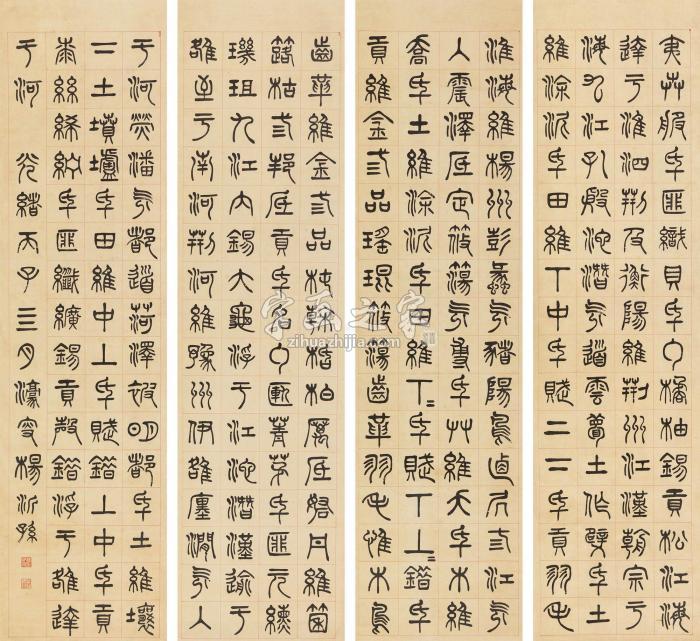 淮海維楊州彭蠡既豬陽鳥逌凥三江既
入震澤厎定筱簜既旉厥艸維夭厥木維
喬厥土維涂泥厥田維下=厥賦下上=錯厥
貢維金三品瑤琨筱簜齒革羽毛惟木鳥
夷艸服厥匪織貝厥包橘柚錫貢松江海
達于淮泗荊及衡陽維荊州江漢朝宗于
海九江孔殷沱潛既道雲夢土作乂厥土
維涂泥厥田維下中厥賦上下厥貢羽毛
齒革維金三品杶榦栝柏厲厎砮丹維箘
簬枯三邦厎貢厥名包匭菁茅厥匪元纁
璣組九江內錫大龜浮于江沱潛漢逾于
雒至于南河荊河維豫州伊雒瀍澗既入
于河熒潘既都道菏澤被明都厥土維壤
下土墳壚厥田維中上厥賦錯上中厥貢
桼絲絺紵厥匪纖纊錫貢磬錯浮于雒達
于河 光緒丙子三月濠叟楊沂孫
字画之家
zihuazhijia.com